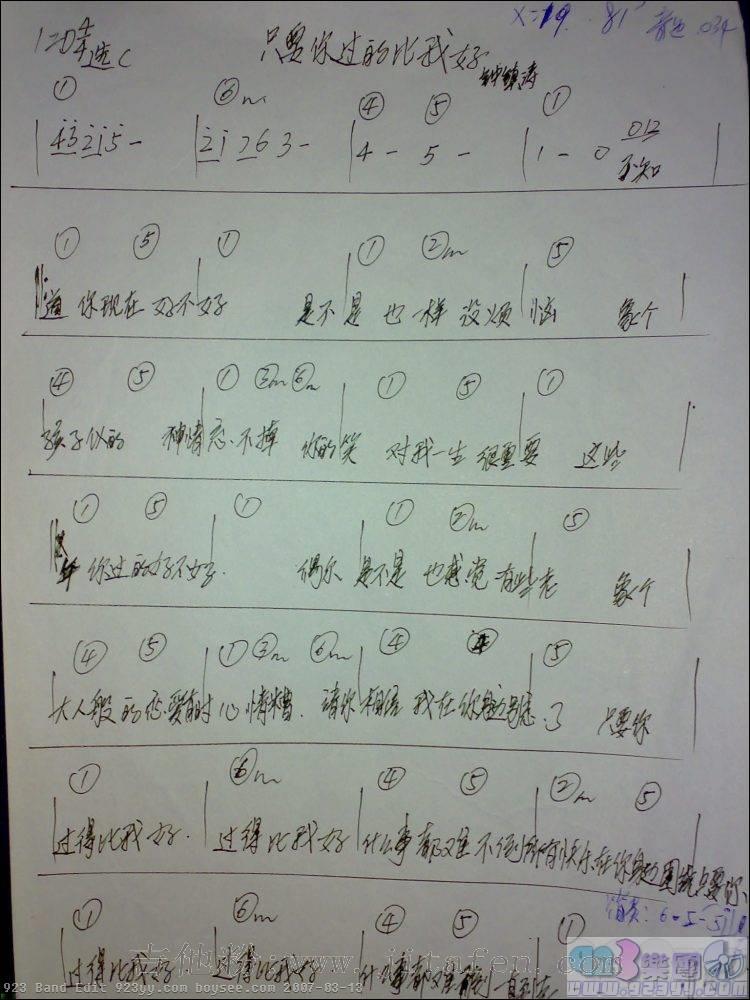 1=D 4/4 选C 只要你过的比我好 钟镇涛
① ⑥m ④ ⑤ ①
4 3 2 1 5 - | 2 1 2 6 3 - | 4 - 5 - | 1 - 0 012 不知
① ⑤ ① ① ②m ⑤
道 你现在 好不好 是不是 也一样 没烦恼 象个
④ ⑤ ① ③m ⑥m ① ⑤ ①
孩子似的 神情忘不掉 你的笑 对我一生 很重要 这些
① ⑤ ① ① ②m ⑤
年 你过的好不好 偶尔 是不是 也感觉 有些老 象个
④ ⑤ ① ③m ⑥m ④ ⑤
大人般的恋爱有时心情糟 请你相信 我在你身边 了 只要你
① ⑥m ④ ⑤ ②m ⑤
过得比我好 过得比我好 什么事都难不倒 所有快乐在你身边围绕 只要你
① ⑥m ④ ⑤ ①
过得比我好 过得比我好 什么事都难不倒 一直到老
吉他粉 www.jitafen.com
923乐团
www.923yy.com
923 Band Edit 923yy.com boysee.com 2007-03-13